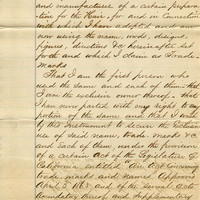 and manufacturer of a certain prepara-
tion for the Hair, for and in connection
with which I have adopted and am
now using the name, words, designs,
figures, directions &c hereinafter set
forth and which I claim as Trade
Marks.
That I am the first person who
used the same and each of them that
I am the exclusive owner thereof. That I
have never parted with my right to any
portion of the same and that I wish to
this Instrument to secure the exclusive
use of said name, trade marks &c
and each of them, under the provision
of a certain Act of the Legislature of
California, entitled An Act Concerning
Trade marks and names Approved
April 3 1863 and of the several Acts
amendatory thereof and Supplementary